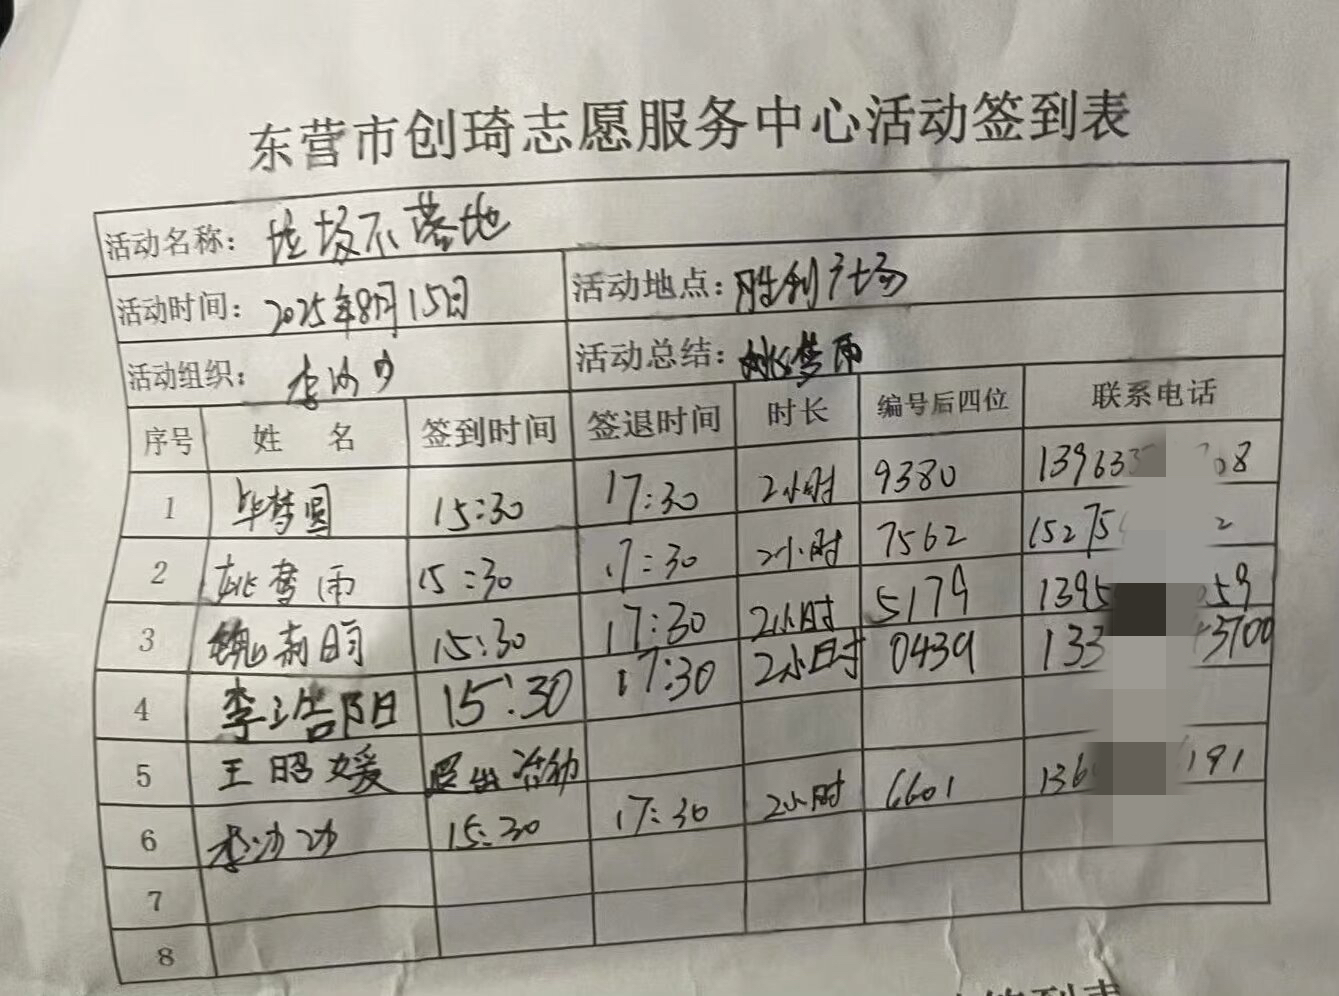 东营市创琦志愿服务中心活动签到表
活动名称：垃圾不落地
活动时间：2025年8月15日 活动地点：胜利广场
活动组织： 活动总结：姚梦雨
序号 姓名 签到时间 签退时间 时长 编号后四位 联系电话
1 毕梦圆 15:30 17:30 2小时 9380 139633 08
2 姚梦雨 15:30 17:30 2小时 7562 15275 2
3 魏莉昀 15:30 17:30 2小时 5179 1395 59
4 李浩阳 15:30 17:30 2小时 0439 133 3700
5 王昭媛 退出活动
6 15:30 17:30 2小时 6601 136 191
7
8